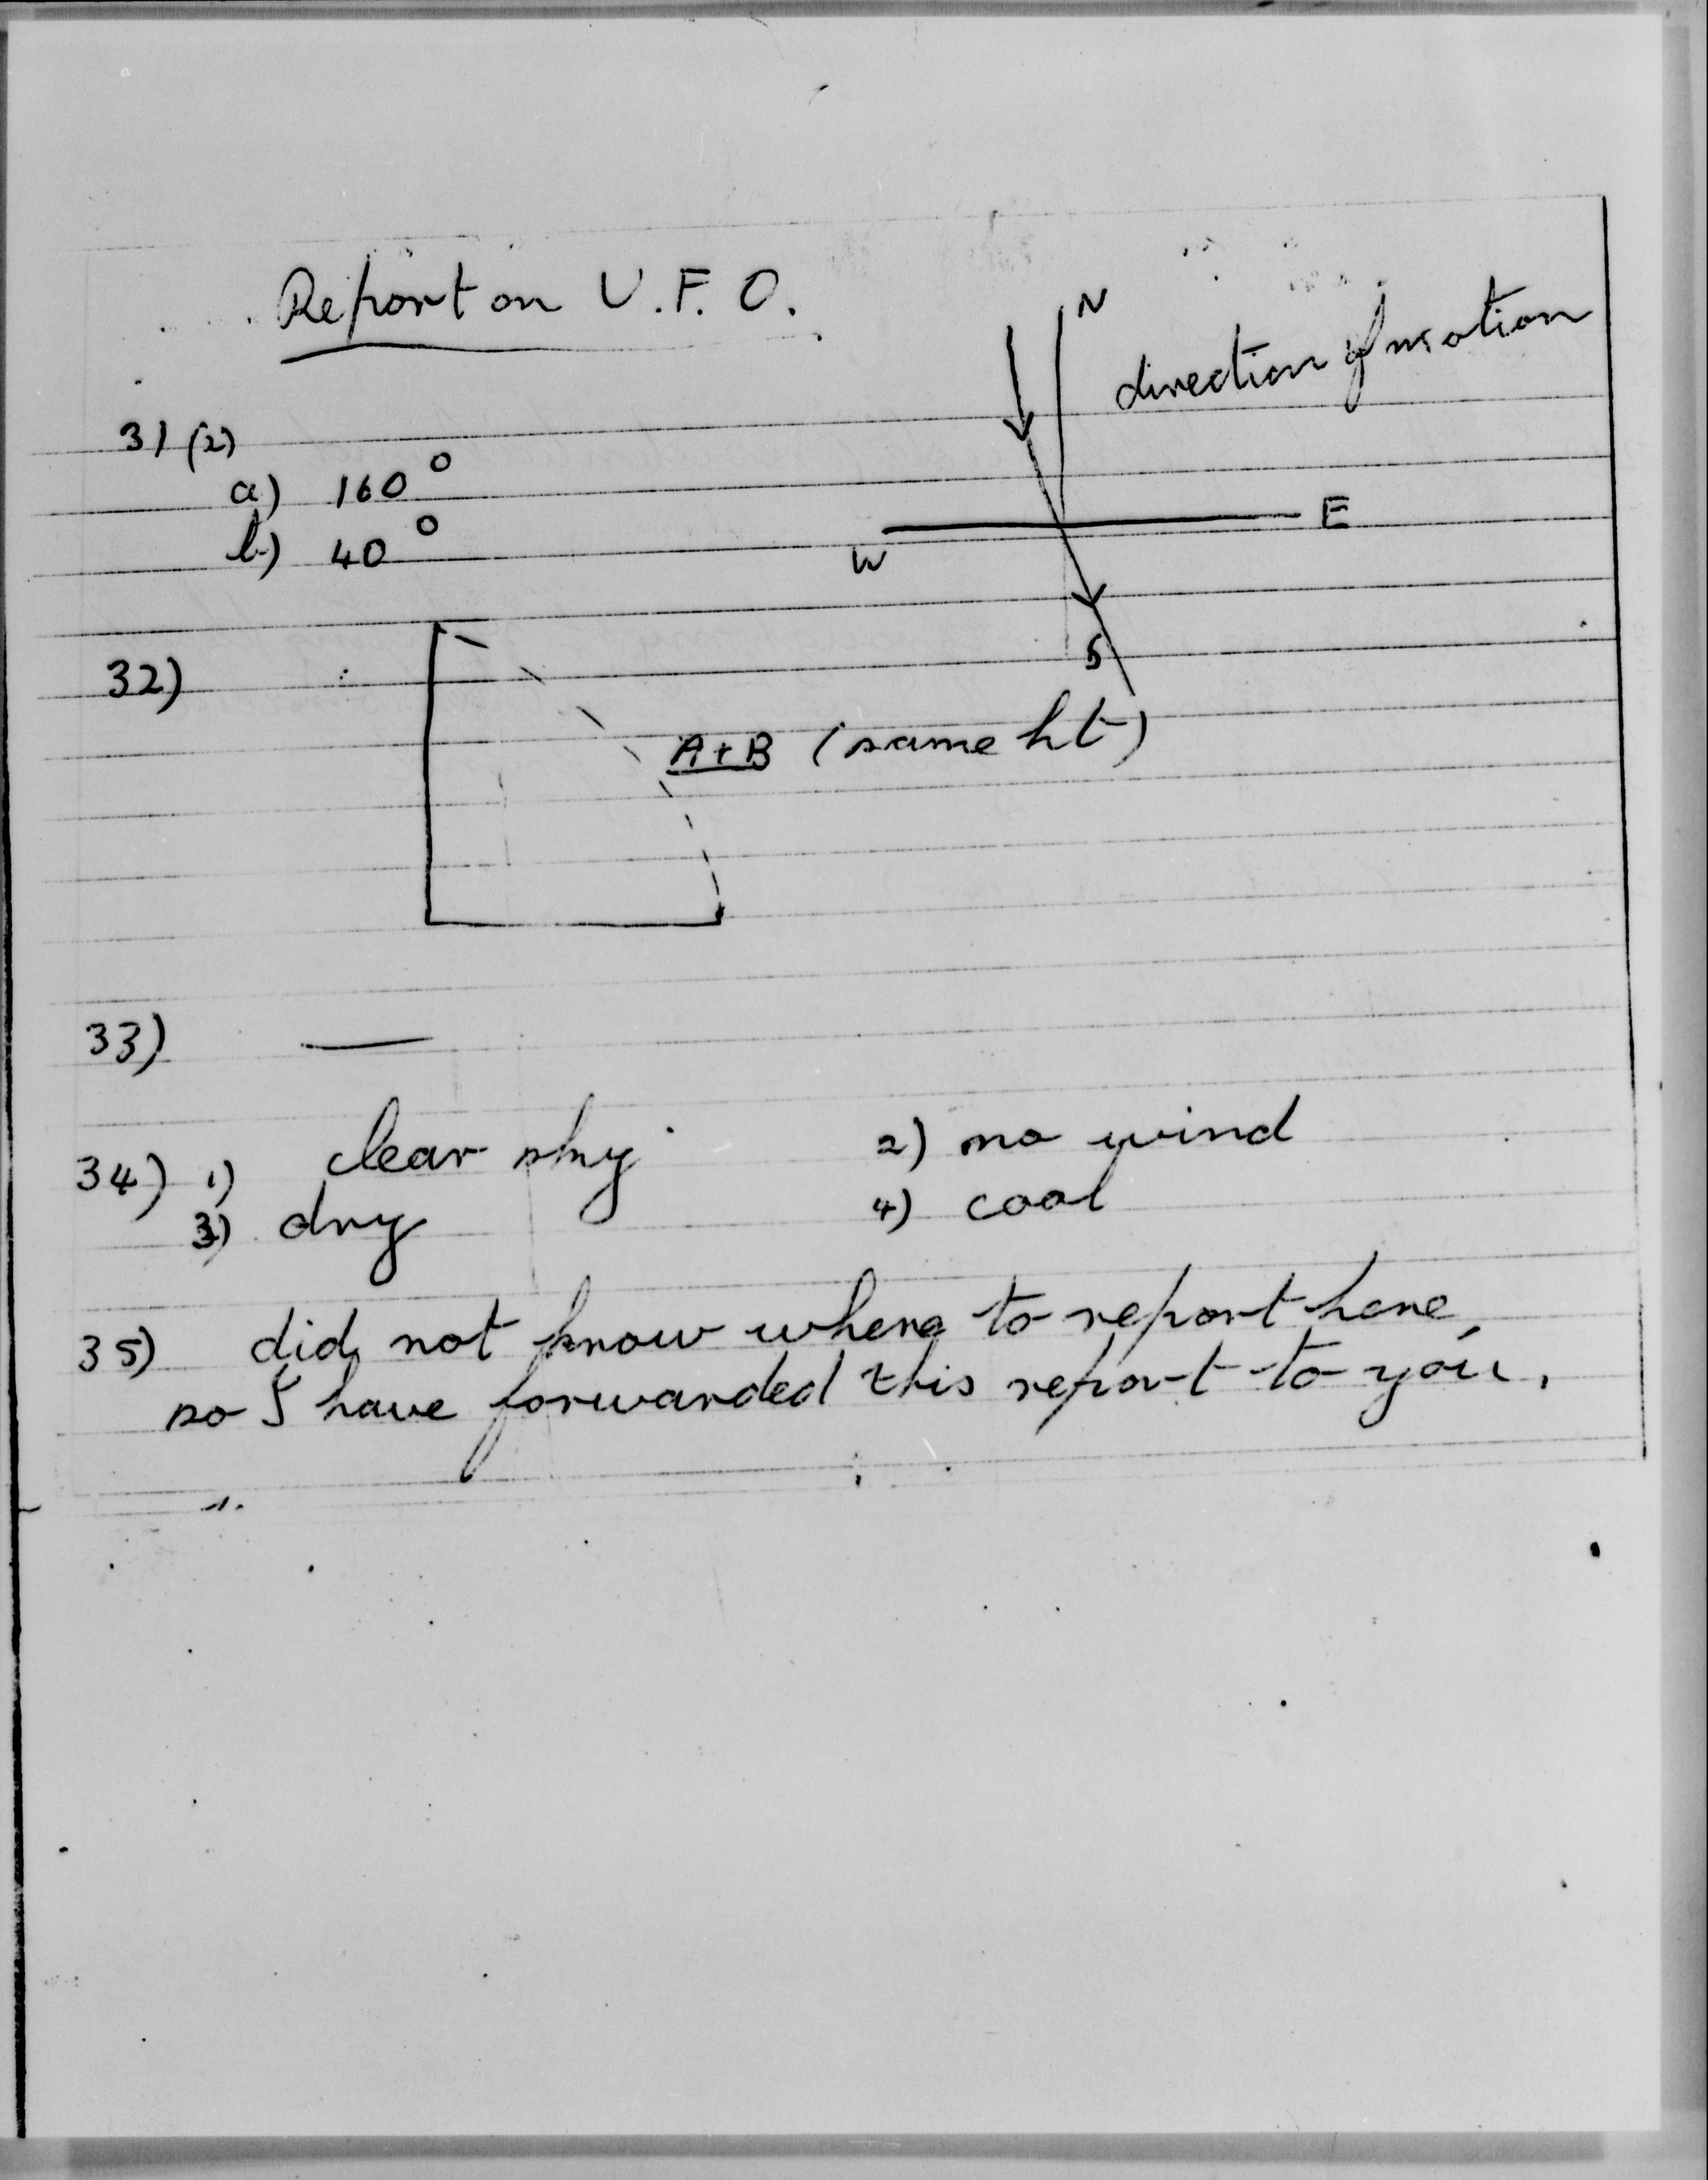 Report on U.F.O.
N
direction of motion
31 (2)
a) 160°
b) 40°
W
E
S
32)
A+B (same ht)
33) —
34) 1) clear sky 2) no wind
3) dry 4) cool
35) did not know where to report here,
so I have forwarded this report to you.